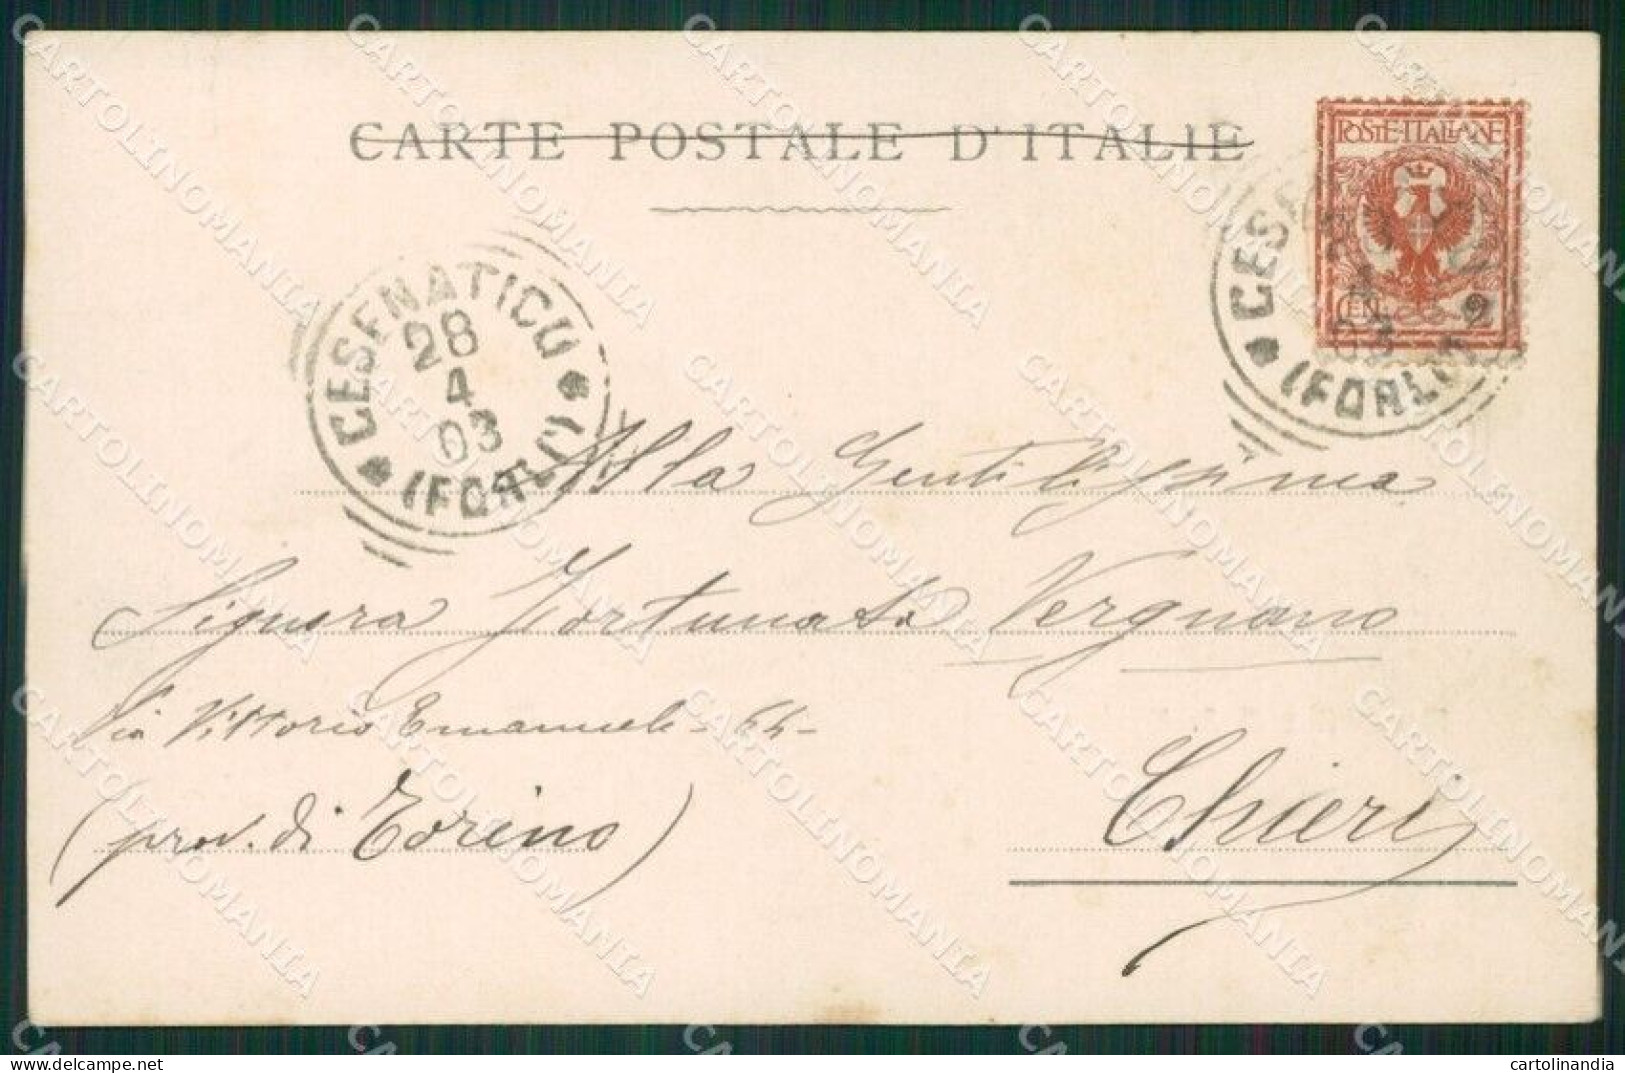 CARTE POSTALE D'ITALIE
POSTE·ITALIANE
2
CESENATICO
28
4
03
(FORLI)
Alla Gentilissima
Signora Fortunata Vergnano
Via Vittorio Emanuele - 64 -
Chieri
(prov. di Torino)
CARTOLINOMANIA
cartolinandia